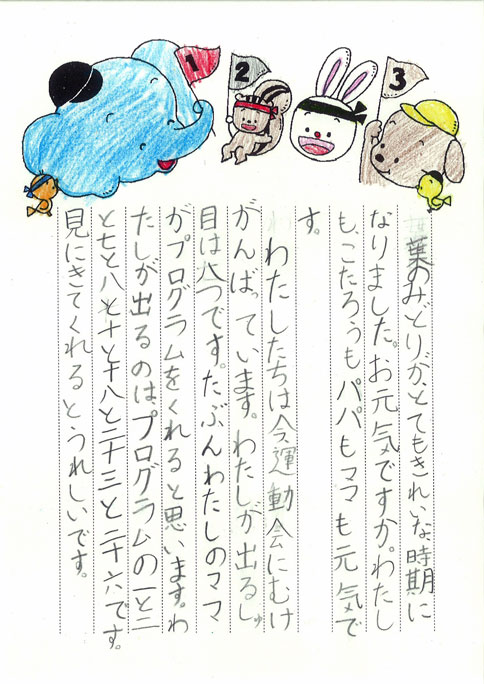 1
2
3
葉のみどりが、とてもきれいな時期に
なりました。お元気ですか。わたし
も、こたろうもパパもママも元気で
す。
わたしたちは今、運動会にむけ
がんばっています。わたしが出るしゅ
目は八つです。たぶんわたしのママ
がプログラムをくれると思います。わ
たしが出るのは、プログラムの一と二
と七と八と十と十八と二十三と二十六です。
見にきてくれるとうれしいです。